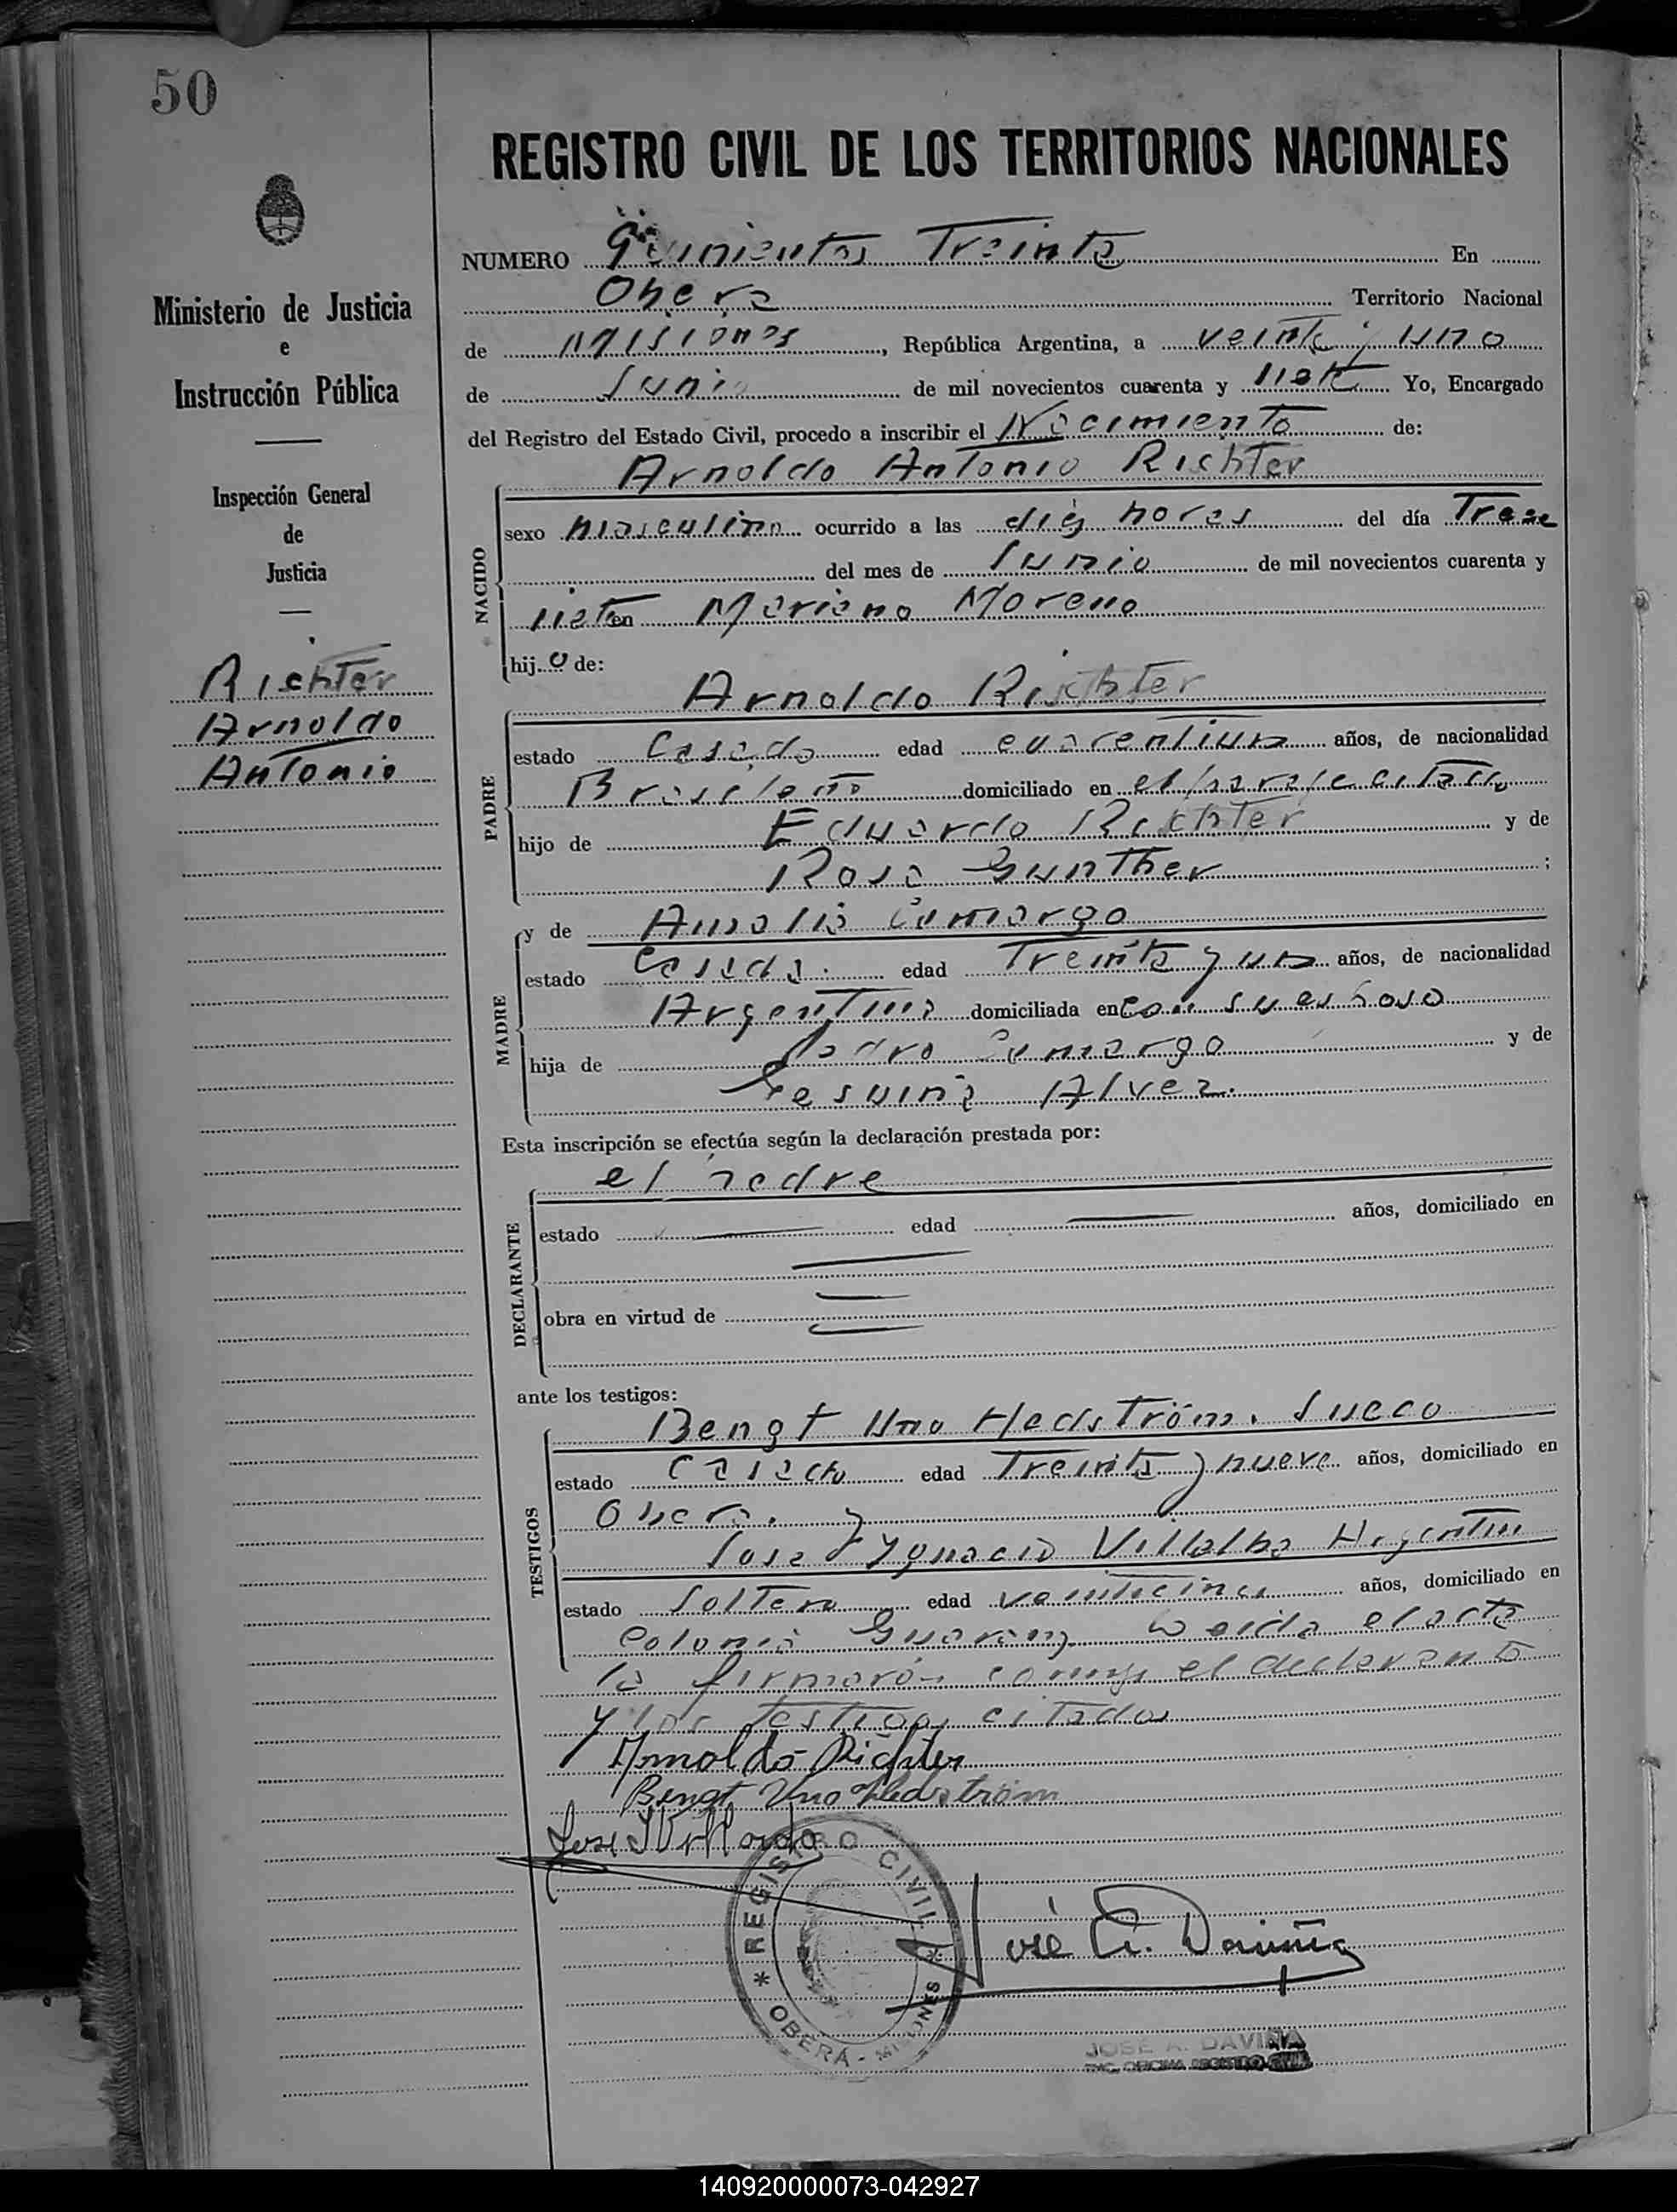 50
REGISTRO CIVIL DE LOS TERRITORIOS NACIONALES
Ministerio de Justicia
e
Instrucción Pública
Inspección General
de
Justicia
Richter
Arnoldo
Antonio
NUMERO Quinientos Treinta En
Obera Territorio Nacional
de Misiones, República Argentina, a veinte y uno
de Junio de mil novecientos cuarenta y siete Yo, Encargado
del Registro del Estado Civil, procedo a inscribir el Nacimiento de:
Arnoldo Antonio Richter
NACIDO
sexo masculino ocurrido a las diez horas del día Trese
del mes de Junio de mil novecientos cuarenta y
siete en Mariano Moreno
hijo de:
Arnoldo Richter
PADRE
estado Casado edad cuarentiun años, de nacionalidad
Brasileño domiciliado en el paraje citado
hijo de Eduardo Richter y de
Rosa Gunther;
MADRE
y de Amalia Camargo
estado Casada. edad Treinta y un años, de nacionalidad
Argentina domiciliada en con su esposo
hija de Pedro Camargo y de
Gesuina Alvez.
Esta inscripción se efectúa según la declaración prestada por:
el padre
DECLARANTE
estado edad años, domiciliado en
obra en virtud de
ante los testigos:
TESTIGOS
Bengt Uno Hedström. Sueco
estado Casado edad Treinta y nueve años, domiciliado en
Obera. y
Jose Ygnacio Villalba Argentin
estado Soltero edad veinticinco años, domiciliado en
Colonia Guarany Leida el acta
la firmarón conmigo el declarante
y los testigos citados
Arnoldo Richter
Bengt Uno Hedström
Jose
REGISTRO CIVIL
* OBERÁ - MISIONES *
José A. Daviña
JOSE A. DAVIÑA
ENC. OFICINA REGISTRO CIVIL
140920000073-042927